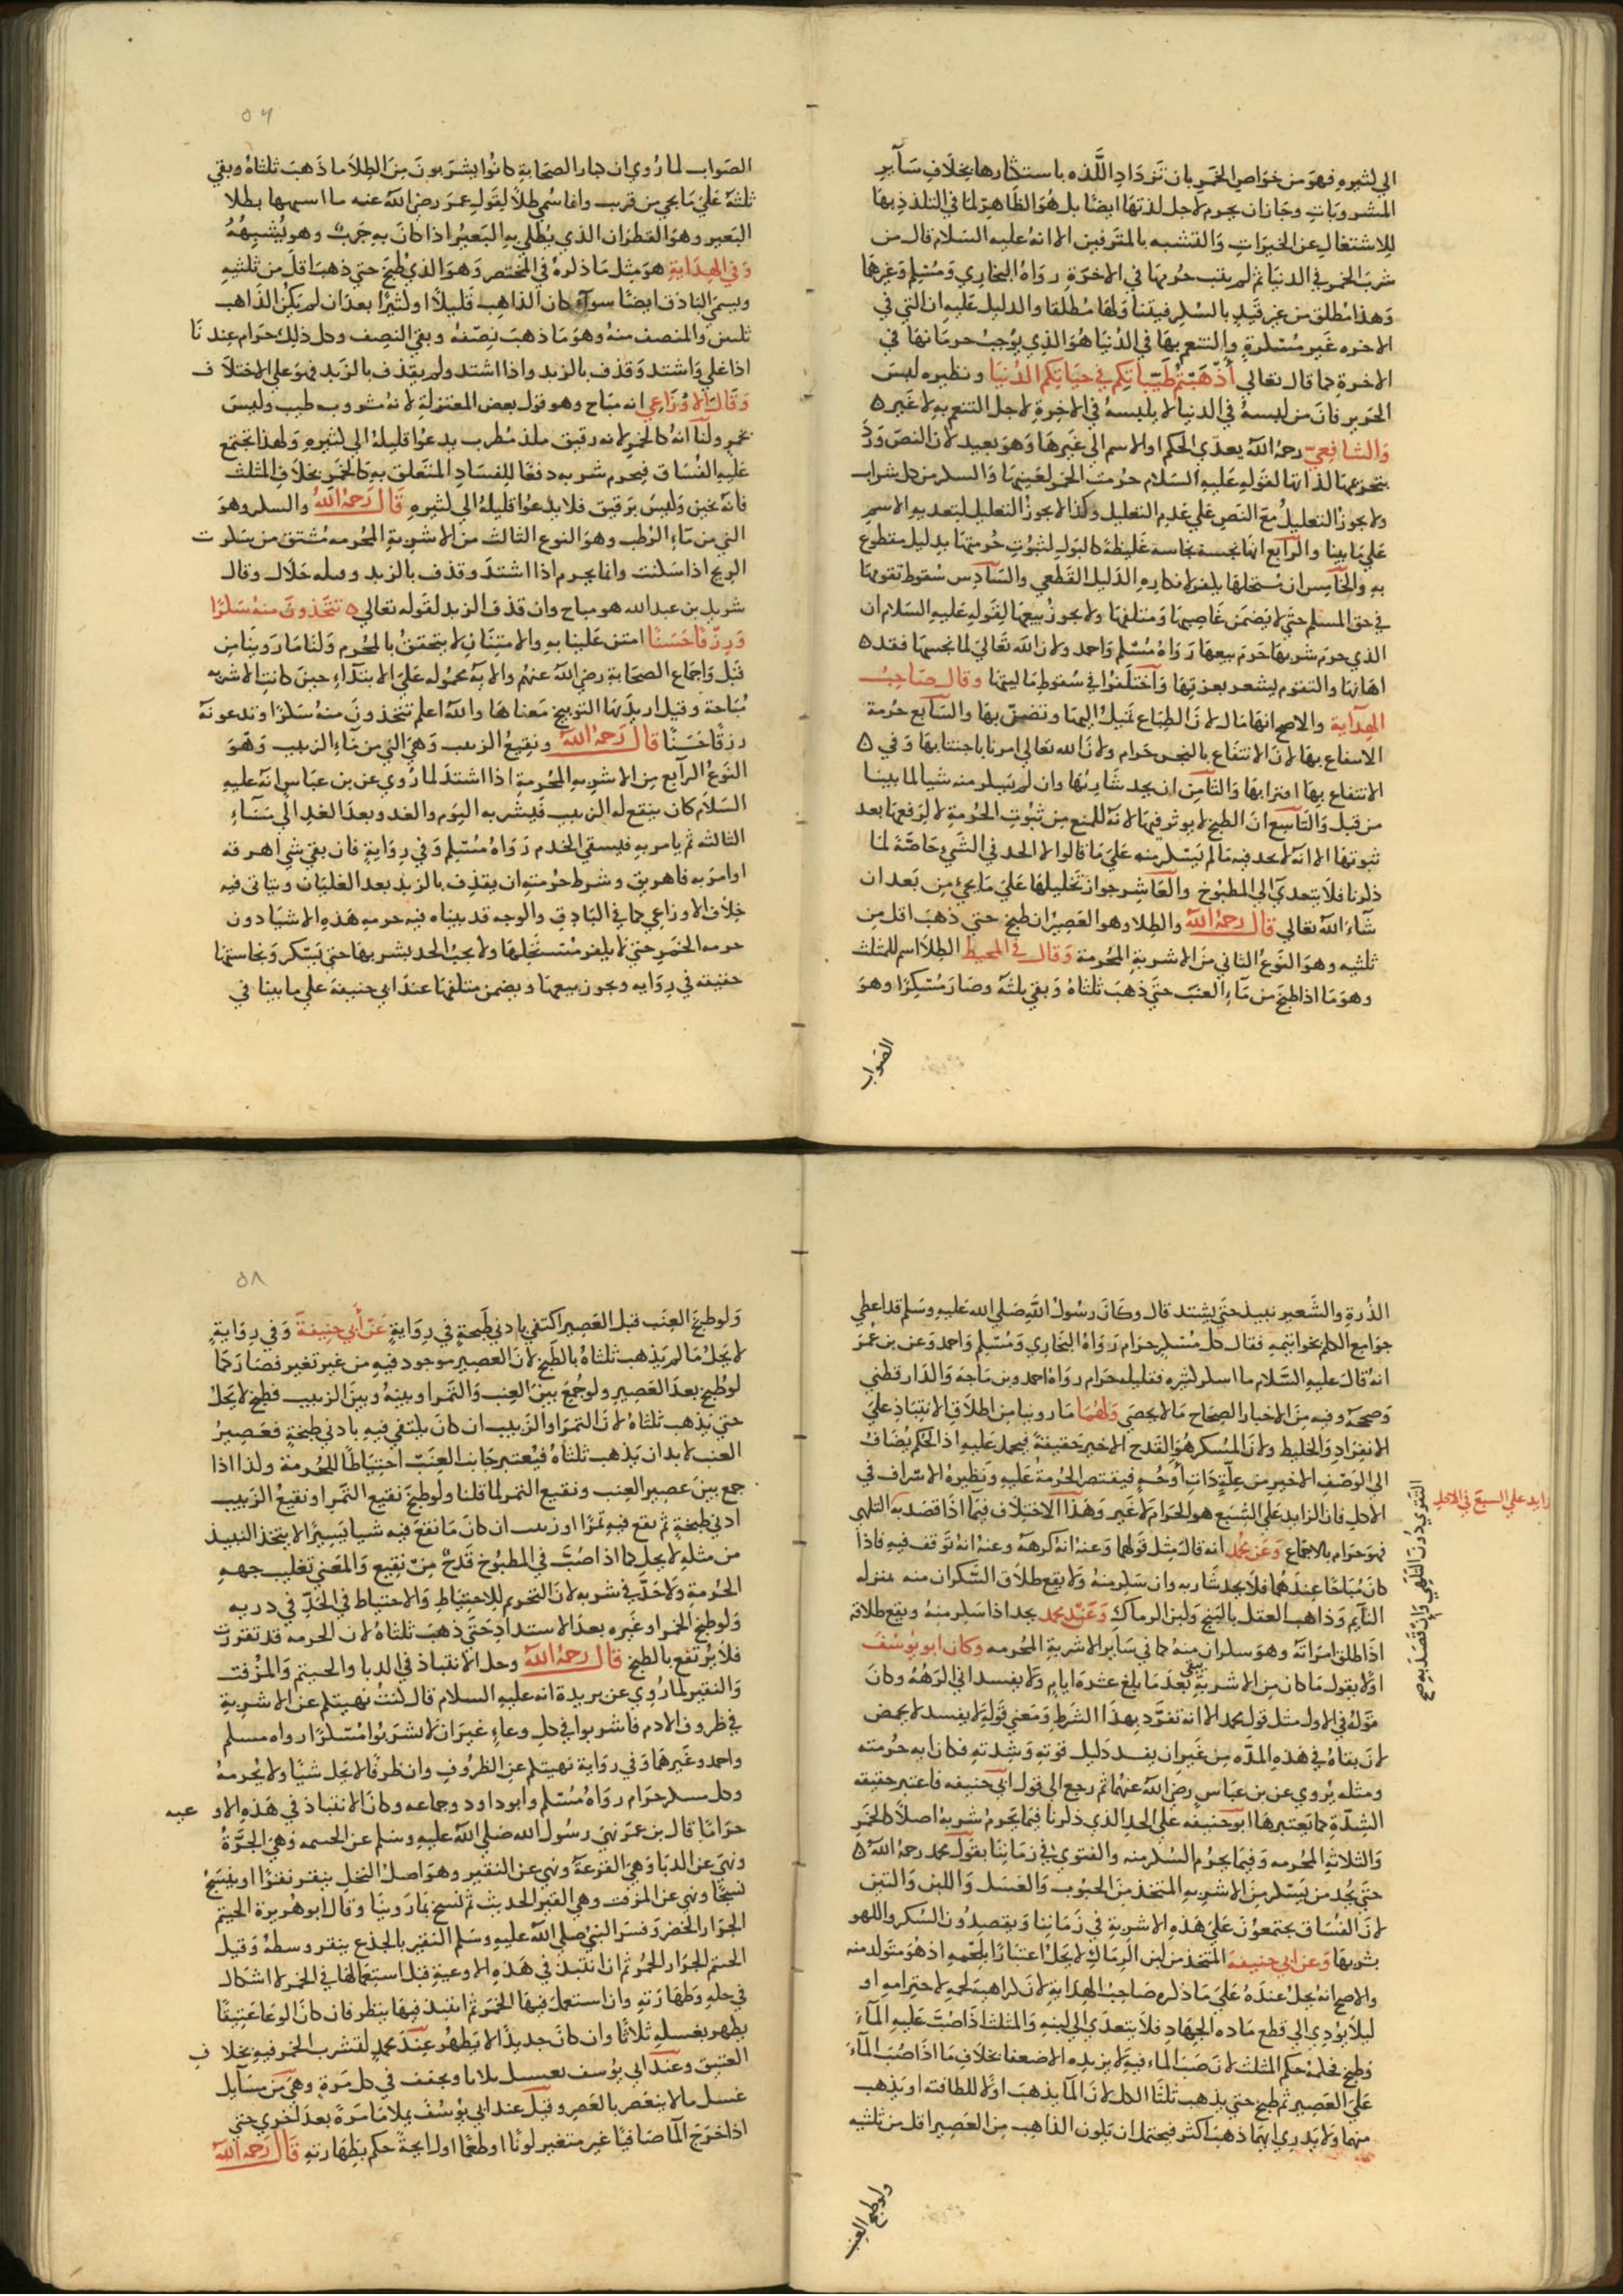 الي كثيره فهو من خواص الخمر بان تزداد اللذه باستكثارها بخلاف سآير
المشروبات وجاز ان يحرم لاجل لذتها ايضا بل هو الظاهر لما في التلذذ بها
للاشتغال عن الخيرات والتشبه بالمترفين الا انه عليه السلام قال من
شرب الخمر في الدنيا ثم لم يتب حرمها في الاخرة رواه البخاري ومسلم وغيرهما
وهذا مطلق من غير قيد بالسكر فيتنا ولها مطلقا والدليل عليه ان التي في
الاخره غير مسكرة والتنعم بها في الدنيا هو الذي يوجب حرمانها في
الاخرة كما قال تعالي أذهبتم طيباتكم في حياتكم الدنيا ونظيره لبس
الحرير فان من لبسه في الدنيا لا يلبسه في الاخرة لاجل التنعم به لا غير ٥
والشافعي رحمه الله يعدي الحكم او الاسم الي غيرها وهو بعيد لان النص ورد
بتحريمها لذاتها لقوله عليه السلام حرمت الخمر لعينها والسكر من كل شراب
ولا يجوز التعليل مع النص علي عدم التعليل وكذا لا يجوز التعليل لتعديه الاسم
علي ما بينا والرابع انها نجسة نجاسة غليظة كالبول لثبوت حرمتها بدليل مقطوع
به والخامس ان مستحلها يكفر لانكاره الدليل القطعي والسادس سقوط تقومها
في حق المسلم حتي لا يضمن غاصبها ومتلفها ولا يجوز بيعها لقوله عليه السلام ان
الذي حرم شربها حرم بيعها رواه مسلم واحمد ولان الله تعالي لما نجسها فقد ٥
اهانها والتقوم يشعر بعزتها واختلفوا في سقوط ماليتها وقال صاحب
الهداية والاصح انها مال لان الطباع تميل اليها وتضن بها والسابع حرمة
الانتفاع بها لان الانتفاع بالنجس حرام ولان الله تعالي امرنا باجتنابها وفي ٥
الانتفاع بها اقترابها والثامن ان يحد شاربها وان لم يسكر منه شيا لما بينا
من قبل والتاسع ان الطبخ لا يوثر فيها لانه للمنع من ثبوت الحرمة لا لرفعها بعد
ثبوتها الا انه لا يحد فيه ما لم يسكر منه علي ما قالوا لان الحد في النيء خاصة لما
ذكرنا فلا يتعدي الي المطبوخ والعاشر جواز تخليلها علي ما يجئ من بعد ان
شاء الله تعالي قال رحمه الله والطلا وهو العصير ان طبخ حتي ذهب اقل من
ثلثيه وهو النوع الثاني من الاشربة المحرمة وقال في المحيط الطلا اسم للمثلث
وهو ما اذا طبخ من ماء العنب حتي ذهب ثلثاه وبقي ثلثه وصار مسكرا وهو
الصواب
٥٧
الصواب لما روي ان كبار الصحابة كانوا يشربون من الطلا ما ذهب ثلثاه وبقي
ثلثه علي ما يجي من قريب وانما سمي طلا لقول عمر رضي الله عنه ما اشبهها بطلا
البعير وهو القطران الذي يطلي به البعير اذا كان به جرب وهو يشبهه
وفي الهداية هو مثل ما ذكره في المختصر وهو الذي طبخ حتي ذهب اقل من ثلثيه
ويسمي الباذق ايضا سوآء كان الذاهب قليلا او كثيرا بعد ان لم يكن الذاهب
ثلثين والمنصف منه وهو ما ذهب نصفه وبقي النصف وكل ذلك حرام عندنا
اذا غلي واشتد وقذف بالزبد واذا اشتد ولم يقذف بالزبد فهو علي الاختلاف
وقال الاوزاعي انه مباح وهو قول بعض المعتزلة لانه مشروب طيب وليس
بخمر ولنا انه كالخمر لانه رقيق ملذ مطرب يدعوا قليله الي كثيره ولهذا تجتمع
عليه الفساق فيحرم شربه دفعا للفساد المتعلق به كالخمر بخلاف المثلث
فانه ثخين وليس برقيق فلا يدعوا قليله الي كثيره قال رحمه الله والسكر وهو
التي من ماء الرطب وهو النوع الثالث من الاشربة المحرمه مشتق من سكرت
الريح اذا سكنت وانما يحرم اذا اشتد وقذف بالزبد وقبله حلال وقال
شريك بن عبدالله هو مباح وان قذف الزبد لقوله تعالي ٥ تتخذون منه سكرا
ورزقا حسنا امتن علينا به والامتنان لا يتحقق بالمحرم ولنا ما روينا من
قبل واجماع الصحابة رضي الله عنهم والايه محموله علي الابتداء حين كانت الاشربه
مباحة وقيل اريد بها التوبيخ معناها والله اعلم تتخذون منه سكرا وتدعونه
رزقا حسنا قال رحمه الله ونقيع الزبيب وهي التي من ماء الزبيب وهو
النوع الرابع من الاشربه المحرمة اذا اشتد لما روي عن بن عباس انه عليه
السلام كان ينقع له الزبيب فيشربه اليوم والغد وبعد الغد الي مساء
الثالثه ثم يامر به فيسقي الخدم رواه مسلم وفي رواية فان بقي شي اهرقه
او امر به فاهريق وشرط حرمته ان يقذف بالزبد بعد الغليان ويتاتي فيه
خلاف الاوزاعي كما في الباذق والوجه قد بيناه فيه حرمه هذه الاشيا دون
حرمه الخمر حتي لا يكفر مستحلها ولا يجب الحد بشربها حتي يسكر ونجاستها
خفيفه في روايه ويجوز بيعها ويضمن متلفها عند ابي حنيفة علي ما بينا في
الذرة والشعير نبيذ حتي يشتد قال وكان رسول الله صلي الله عليه وسلم قد اعطي
جوامع الكلم بخواتيمه فقال كل مسكر حرام رواه البخاري ومسلم واحمد وعن بن عمر
انه قال عليه السلام ما اسكر كثيره فقليله حرام رواه احمد وبن ماجة والدارقطني
وصححه وفيه من الاخبار الصحاح ما لا يحصي ولهما ما روينا من اطلاق الانتباذ علي
الانفراد والخليط ولان المسكر هو القدح الاخير حقيقة فيحمل عليه اذ الحكم يضاف
الي الوصف الاخير من علة ذات اوجه فيقتصر الحرمة عليه ونظيره الاسراف في
الاكل فان الزايد علي الشبع هو الحرام لا غير وهذا الاختلاف فيما اذا قصد به التلهي
زايد علي الشبع في الاكل
التقوي دون التلهي وان قصد به صح
فهو حرام بالاجماع وعن محمد انه قال مثل قولهما وعنه انه كرهه وعنه انه توقف فيه فاذا
كان مباحا عندهما فلا يحد شاربه وان سكر منه ولا يقع طلاق السكران منه بمنزله
النآيم وذاهب العقل بالبنج ولبن الرماك وعند محمد يحد اذا سكر منه ويقع طلاقه
اذا طلق امراته وهو سكران منه كما في سآير الاشربة المحرمه وكان ابو يوسف
اولا يقول ما كان من الاشربة يبقي بعد ما يبلغ عشرة ايام ولا يفسد اني اكرهه وكان
قوله في الاول مثل قول محمد الا انه تفرد بهذا الشرط ومعني قوله لا يفسد لا يحمض
لان بقاه في هذه المده من غير ان يفسد دليل قوته وشدته فكان ايه حرمته
ومثله يروي عن بن عباس رضي الله عنهما ثم رجع الي قول ابي حنيفه فاعتبر حقيقه
الشدة كما يعتبرها ابو حنيفه علي الحد الذي ذكرنا فيما يحرم شربه اصلا كالخمر
والثلاثه المحرمه وفيما يحرم السكر منه والفتوي في زماننا بقول محمد رحمه الله ٥
حتي يحد من يسكر من الاشربه المتخذ من الحبوب والعسل واللبن والتين
لان الفساق يجتمعون علي هذه الاشربة في زماننا ويقصدون السكر واللهو
بشربها وعن ابي حنيفه المتخذ من لبن الرماك لا يحل اعتبارا بلحمه اذ هو متولد منه
والاصح انه يحل عنده علي ما ذكره صاحب الهداية لان كراهية لحمه لاحترامه او
ليلا يودي الي قطع ماده الجهاد فلا يتعدي الي لبنه والمثلث اذا صب عليه المآء
وطبخ فحكمه حكم المثلث لان صب الماء فيه لا يزيده الا ضعفا بخلاف ما اذا صب المآء
علي العصير ثم طبخ حتي يذهب ثلثا الكل لان المآ يذهب اولا للطافته او يذهب
منهما ولا يدري ايهما ذهب اكثر فيحتمل ان يكون الذاهب من العصير اقل من ثلثيه
ولو طبخ العنب
٥٨
ولو طبخ العنب قبل العصير اكتفي بادني طبخة في رواية عن أبي حنيفة وفي رواية
لا يحل ما لم يذهب ثلثاه بالطبخ لان العصير موجود فيه من غير تغير فصار كما
لو طبخ بعد العصير ولو جمع بين العنب والتمر او بينه وبين الزبيب فطبخ لا يحل
حتي يذهب ثلثاه لان التمر او الزبيب ان كان يكتفي فيه بادني طبخة فعصير
العنب لابد ان يذهب ثلثاه فيعتبر جانب العنب احتياطا للحرمة ولذا اذا
جمع بين عصير العنب ونقيع التمر لما قلنا ولو طبخ نقيع التمر او نقيع الزبيب
ادني طبخة ثم نقع فيه تمرا او زبيب ان كان ما نقع فيه شيا يسيرا لا يتخذ النبيذ
من مثله لا يحل كما اذا صب في المطبوخ قدح من نقيع والمعني تغليب جهه
الحرمة ولا حد في شربه لان التحريم للاحتياط والاحتياط في الحد في درءه
ولو طبخ الخمر او غيره بعد الاشتداد حتي ذهب ثلثاه لان الحرمه قد تقررت
فلا يرتفع بالطبخ قال رحمه الله وحل الانتباذ في الدبا والحنتم والمزفت
والنقير لما روي عن بريدة انه عليه السلام قال كنت نهيتكم عن الاشربة
في ظروف الادم فاشربوا في كل وعاء غير ان لا تشربوا مسكرا رواه مسلم
واحمد وغيرهما وفي رواية نهيتكم عن الظروف وان ظرفا لا يحل شيئا ولا يحرمه
وكل مسكر حرام رواه مسلم وابو داود وجماعه وكان الانتباذ في هذه الاوعيه
حراما قال بن عمر نهي رسول الله صلي الله عليه وسلم عن الحنتمه وهي الجرة
ونهي عن الدبا وهي القرعة ونهي عن النقير وهو اصل النخل ينقر نقرا او ينسج
نسجا ونهي عن المزفت وهي القير الحديث ثم نسخ بما روينا وقال ابو هريرة الحنتم
الجرار الخضر وفسر النبي صلي الله عليه وسلم النقير بالجذع ينقر وسطه وقيل
الحنتم الجرار الحمر ثم ان انتبذ في هذه الاوعية قبل استعمالها في الخمر لا اشكال
في حله وطهارته وان استعمل فيها الخمر ثم انتبذ فيها ينظر فان كان الوعا عتيقا
يطهر بغسله ثلاثا وان كان جديدا لا يطهر عند محمد لتشرب الخمر فيه بخلاف
العتيق وعند ابي يوسف يغسل ثلاثا ويجفف في كل مرة وهي من مسآيل
غسل ما لا ينعصر بالعصر وقيل عند ابي يوسف يملا ما مرة بعد اخري حتي
اذا خرج المآ صافيا غير متغير لونا او طعما او رايحة حكم بطهارته قال رحمه الله